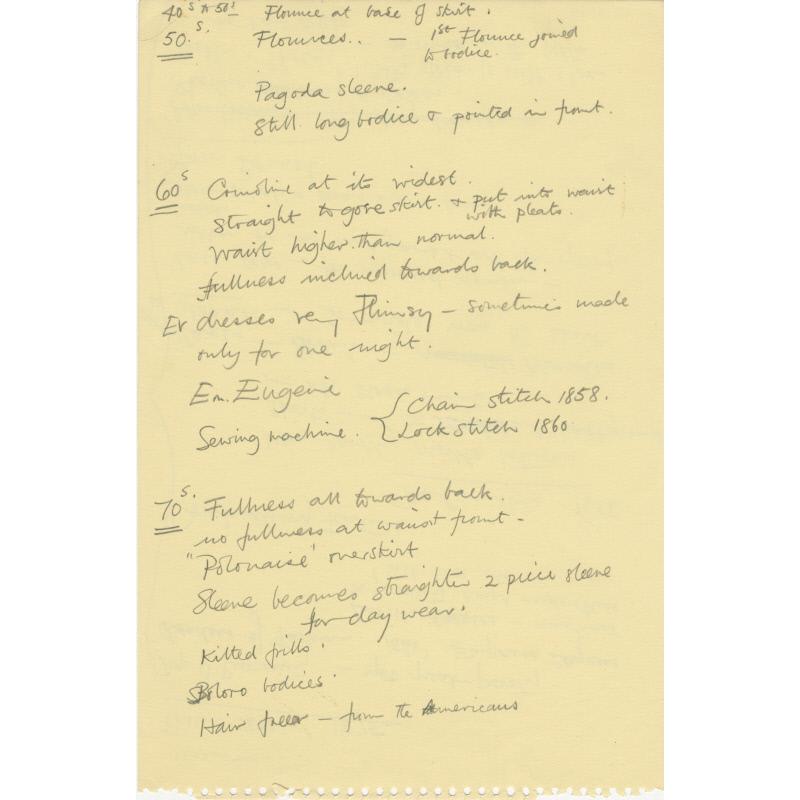 40s to 50s Flounce at base of skirt.
50.s. Flounces.. — 1st Flounce joined
to bodice.
Pagoda sleeve.
Still long bodice & pointed in front.
60s Crinoline at its widest.
Straight to gore skirt. & put into waist
with pleats.
Waist higher than normal.
fullness inclined towards back.
Ev dresses very Flimsy — sometimes made
only for one night.
Em. Eugenie
Sewing machine. { Chain stitch 1858.
Lock stitch 1860
70s. Fullness all towards back.
no fullness at waist front -
"Polonaise" overskirt
Sleeve becomes straighter 2 piece sleeve
for day wear.
Kilted frills.
Boloro bodices.
Hair freer — from the Americans